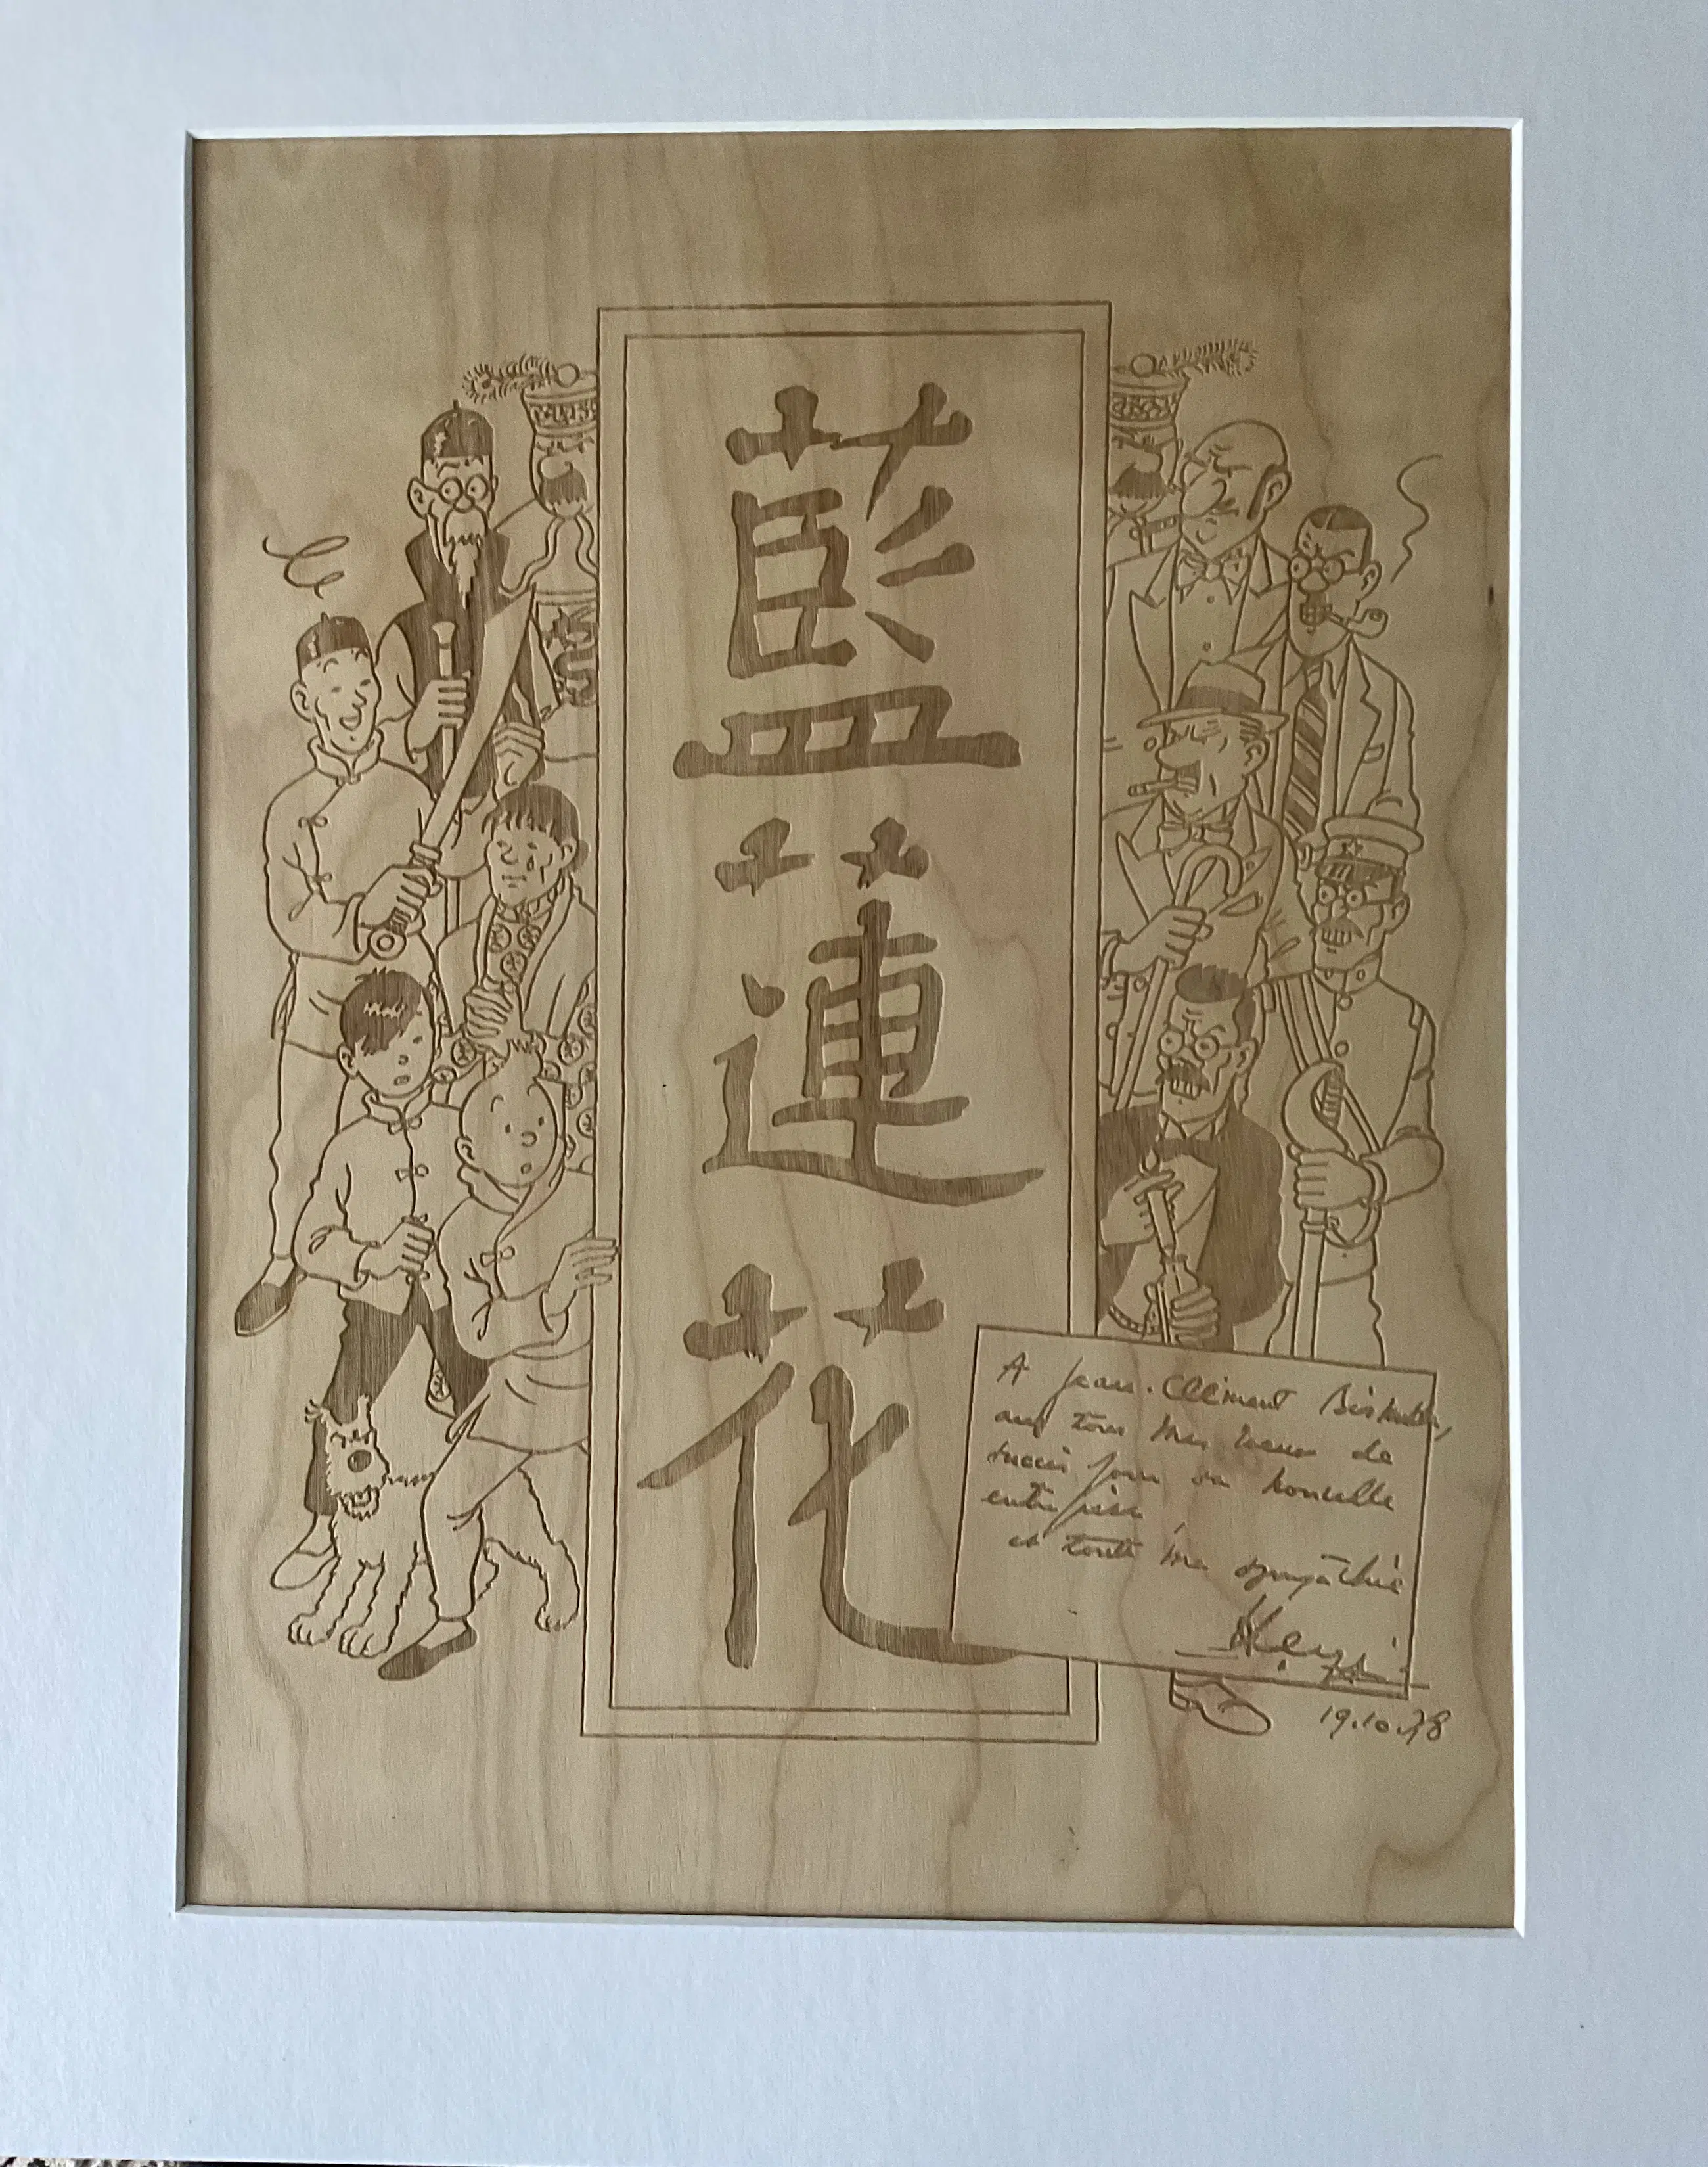 藍
蓮
花
A Jean-Clément
avec tous mes vœux de
succès pour sa nouvelle
entreprise,
et toute ma sympathie
Hergé
19.10.78